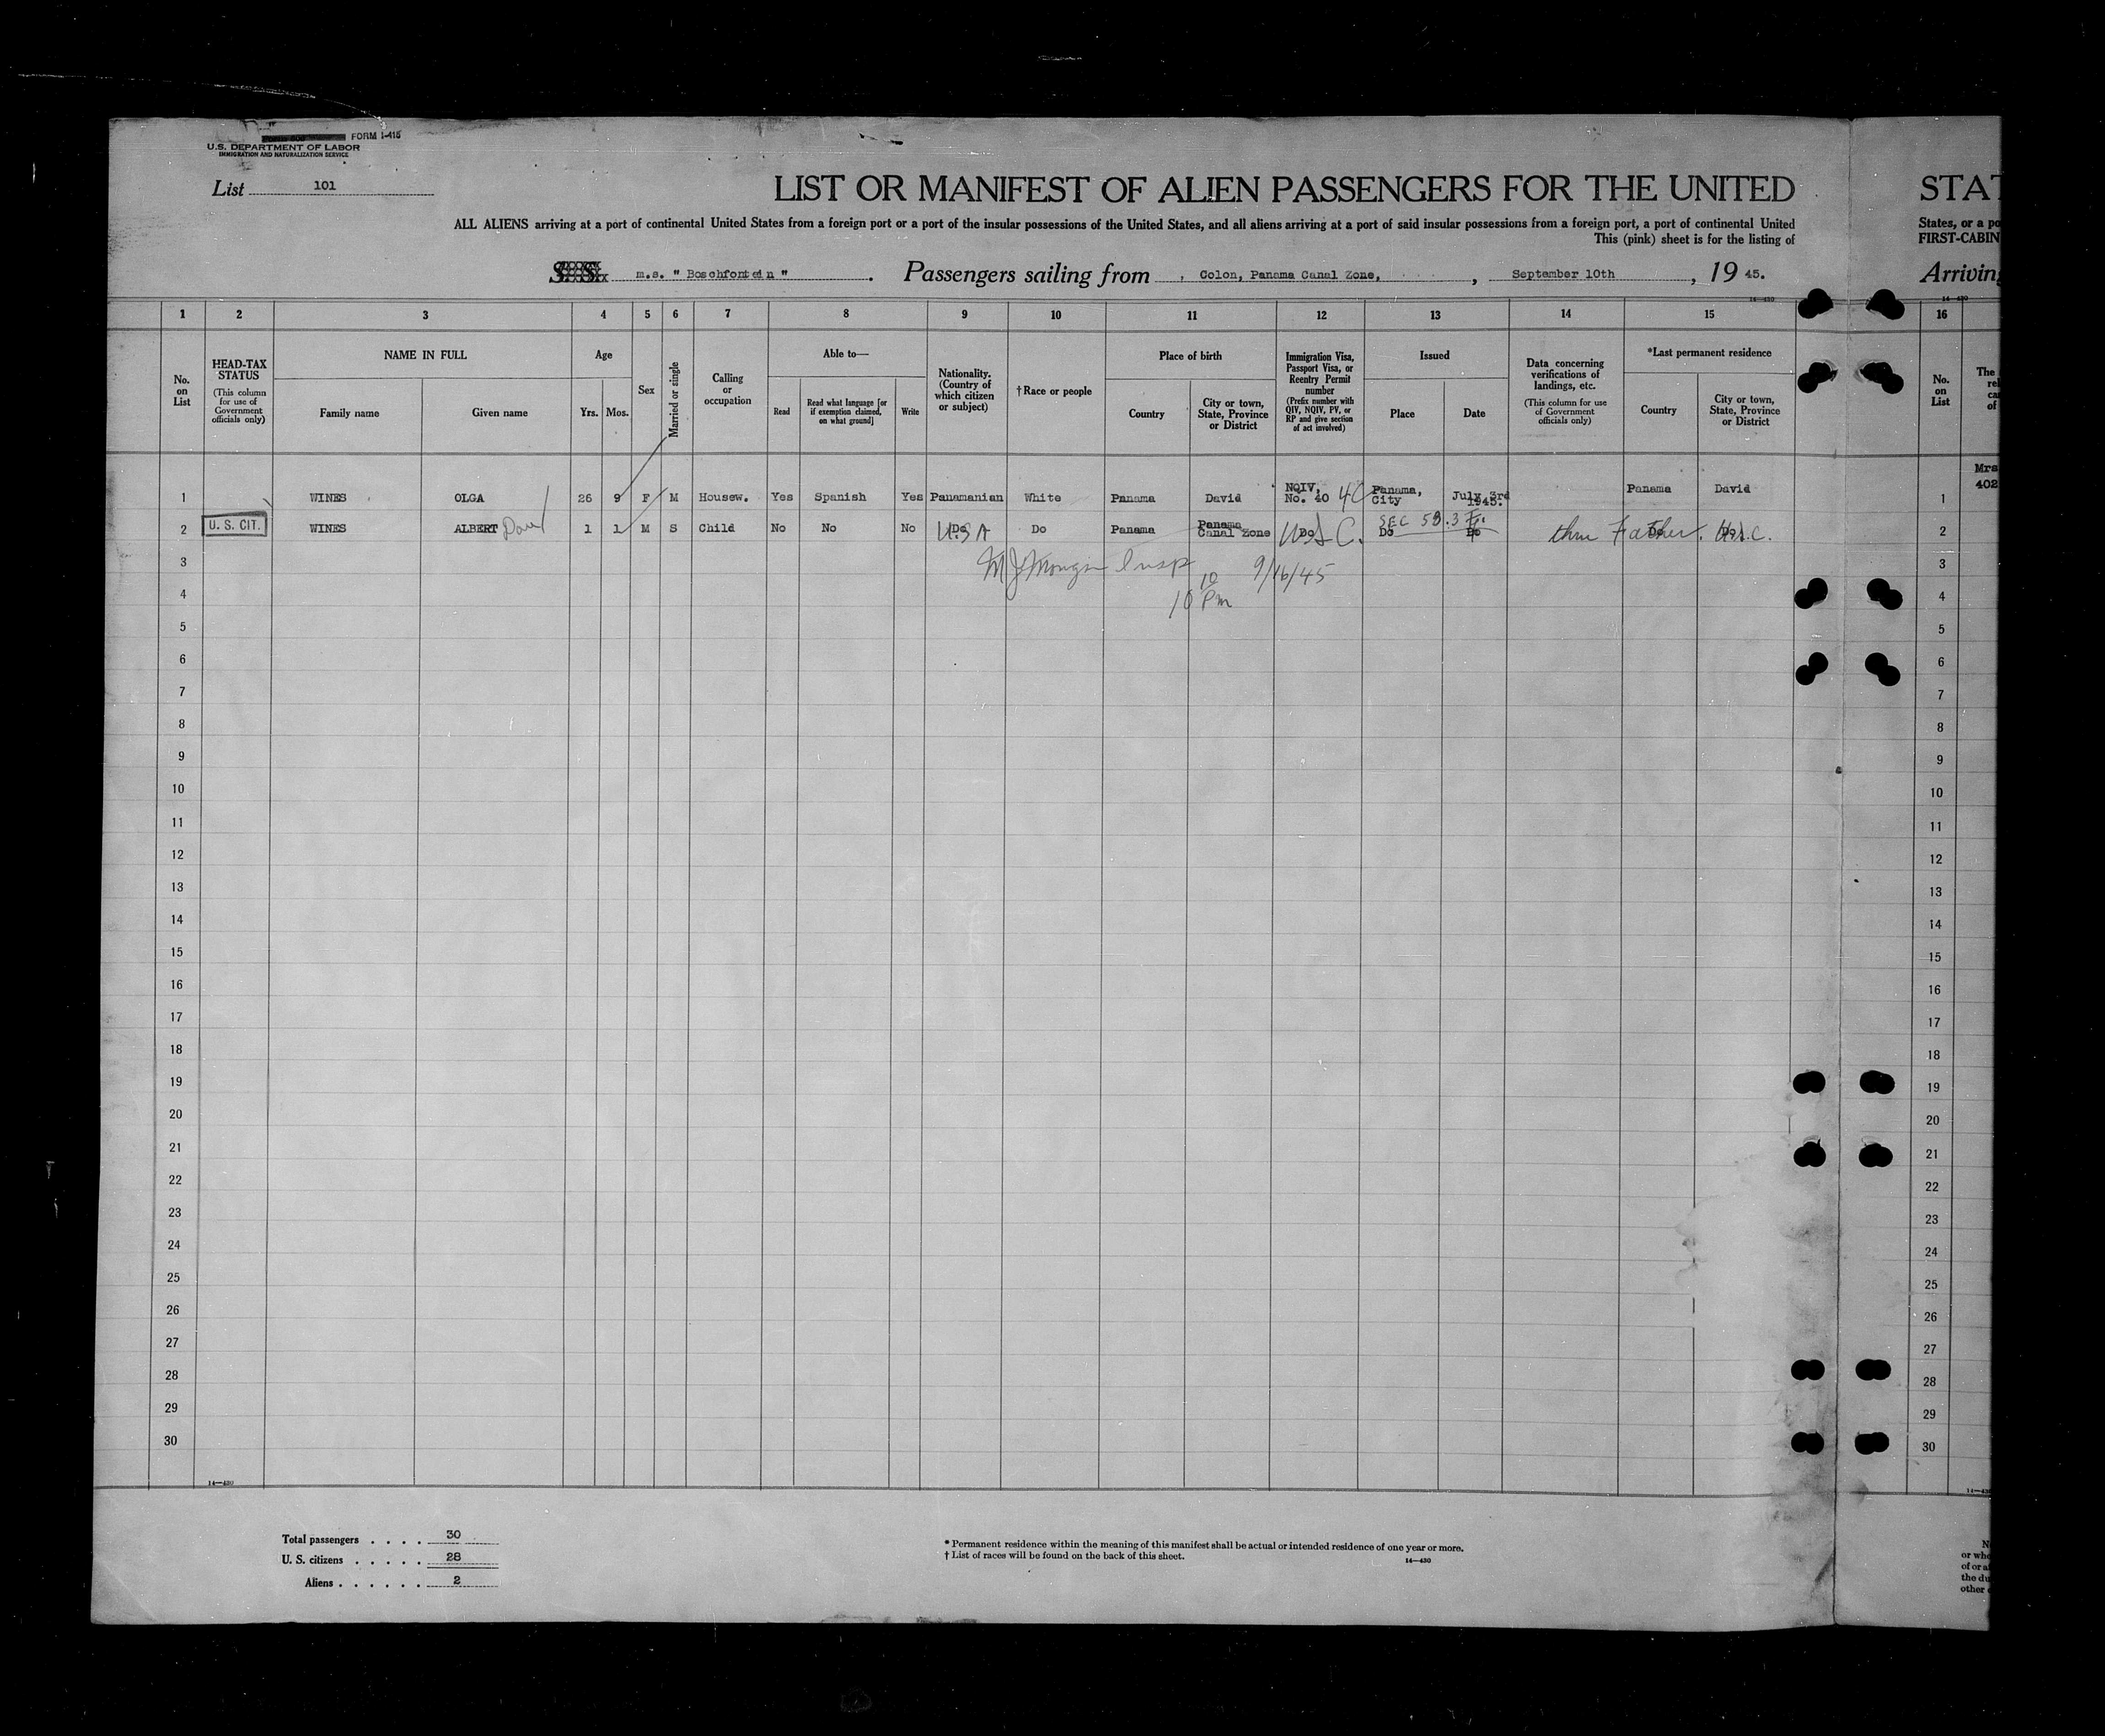 FORM I-415
U.S. DEPARTMENT OF LABOR
IMMIGRATION AND NATURALIZATION SERVICE
List 101
LIST OR MANIFEST OF ALIEN PASSENGERS FOR THE UNITED STAT
ALL ALIENS arriving at a port of continental United States from a foreign port or a port of the insular possessions of the United States, and all aliens arriving at a port of said insular possessions from a foreign port, a port of continental United States, or a po
This (pink) sheet is for the listing of FIRST-CABIN
m.s. " Boschfontein ". Passengers sailing from , Colon, Panama Canal Zone, , September 10th , 19 45. Arriving
14—430 14—430
1 2 3 4 5 6 7 8 9 10 11 12 13 14 15 16
No. on List
HEAD-TAX STATUS
(This column for use of Government officials only)
NAME IN FULL
Family name Given name
Age
Yrs. Mos.
Sex
Married or single
Calling or occupation
Able to—
Read
Read what language [or if exemption claimed, on what ground]
Write
Nationality. (Country of which citizen or subject)
†Race or people
Place of birth
Country
City or town, State, Province or District
Immigration Visa, Passport Visa, or Reentry Permit number
(Prefix number with QIV, NQIV, PV, or RP and give section of act involved)
Issued
Place Date
Data concerning verifications of landings, etc.
(This column for use of Government officials only)
*Last permanent residence
Country
City or town, State, Province or District
No. on List
The
Mrs
402
1 WINES OLGA 26 9 F M Housew. Yes Spanish Yes Panamanian White Panama David NQIV, No. 40 4C Panama, City July 3rd 1945. Panama David 1
2 U. S. CIT. WINES ALBERT 1 1 M S Child No No No Do U.S A Do Panama Panama Canal Zone Do U.S.C. Do SEC 53.3 Do thru Father. Do Do U.S.C. 2
3 Insp 9/16/45 3
4 10 10 Pm 4
5 5
6 6
7 7
8 8
9 9
10 10
11 11
12 12
13 13
14 14
15 15
16 16
17 17
18 18
19 19
20 20
21 21
22 22
23 23
24 24
25 25
26 26
27 27
28 28
29 29
30 30
14—430
Total passengers . . . . 30
U. S. citizens . . . . . 28
Aliens . . . . . . 2
* Permanent residence within the meaning of this manifest shall be actual or intended residence of one year or more.
† List of races will be found on the back of this sheet.
14—430
or whe
of or al
the du
other